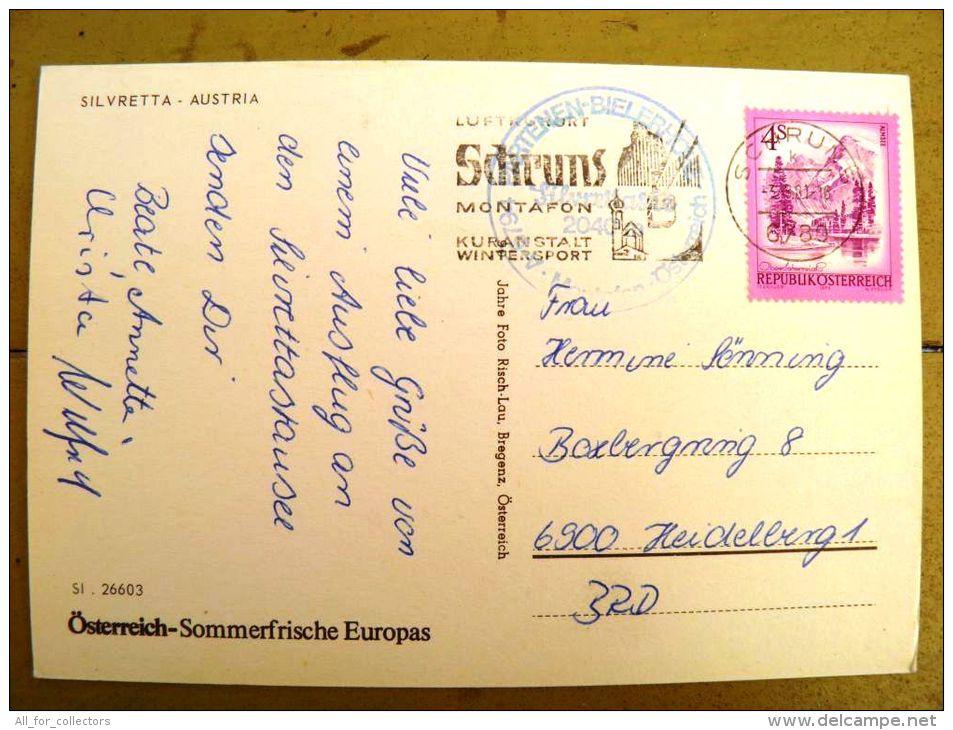 SILVRETTA - AUSTRIA
Viele liebe Grüße von
einem Ausflug an
den Silvrettastausee
senden Dir
Beate, Annette,
Christa Wilfried
SI . 26603
Österreich-Sommerfrische Europas
Jahre Foto Risch-Lau, Bregenz, Österreich
LUFTKURORT
Schruns
MONTAFON
KURANSTALT
WINTERSPORT
PARTENEN-BIELERHÖHE
2040
SCHRUNS
6780
4S
ALMSEE
REPUBLIK ÖSTERREICH
Frau
Hermine Sönning
Boxbergring 8
6900 Heidelberg 1
BRD
All_for_collectors
www.delcampe.net